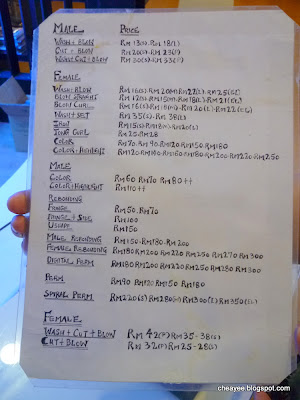 MALE PRICE
WASH + BLOW RM 13(S). RM 18(L)
CUT + BLOW RM 20(S). RM 23(L)
WASH+CUT+BLOW RM 30(S). RM 33(L)
FEMALE
WASH+BLOW RM 16(S) RM 20(M) RM 22(L) RM 25(EL)
BLOW STRAIGHT
BLOW CURL
WASH+SET RM 35(S). RM 38(L)
IRON RM 15(S) RM 18(M) RM 20(L)
TONG CURL RM 25. RM 28
COLOR RM 70. RM 90. RM 120. RM 150. RM 180
COLOR+HIGHLIGHT RM 120. RM 140. RM 160. RM 180. RM 200. RM 220. RM 250
MALE
COLOR RM 60 RM 70 RM 80++
COLOR+HIGHLIGHT RM 110++
REBONDING
FRINGE RM 50. RM 70
FRINGE + SIDE RM 100
U SHAPE RM 150
MALE REBONDING RM 150. RM 180. RM 200
FEMALE REBONDING RM 180. RM 200. RM 220. RM 250. RM 270. RM 300
DIGITAL PERM RM 180. RM 200. RM 220. RM 250. RM 280. RM 300
PERM RM 90. RM 120. RM 150. RM 180
SPIRAL PERM RM 220(S). RM 280(M). RM 300(L). RM 350(EL)
FEMALE
WASH + CUT + BLOW RM 42(F) RM 35-38(S)
CUT + BLOW RM 32(F) RM 25-28(S)
cheayee.blogspot.com